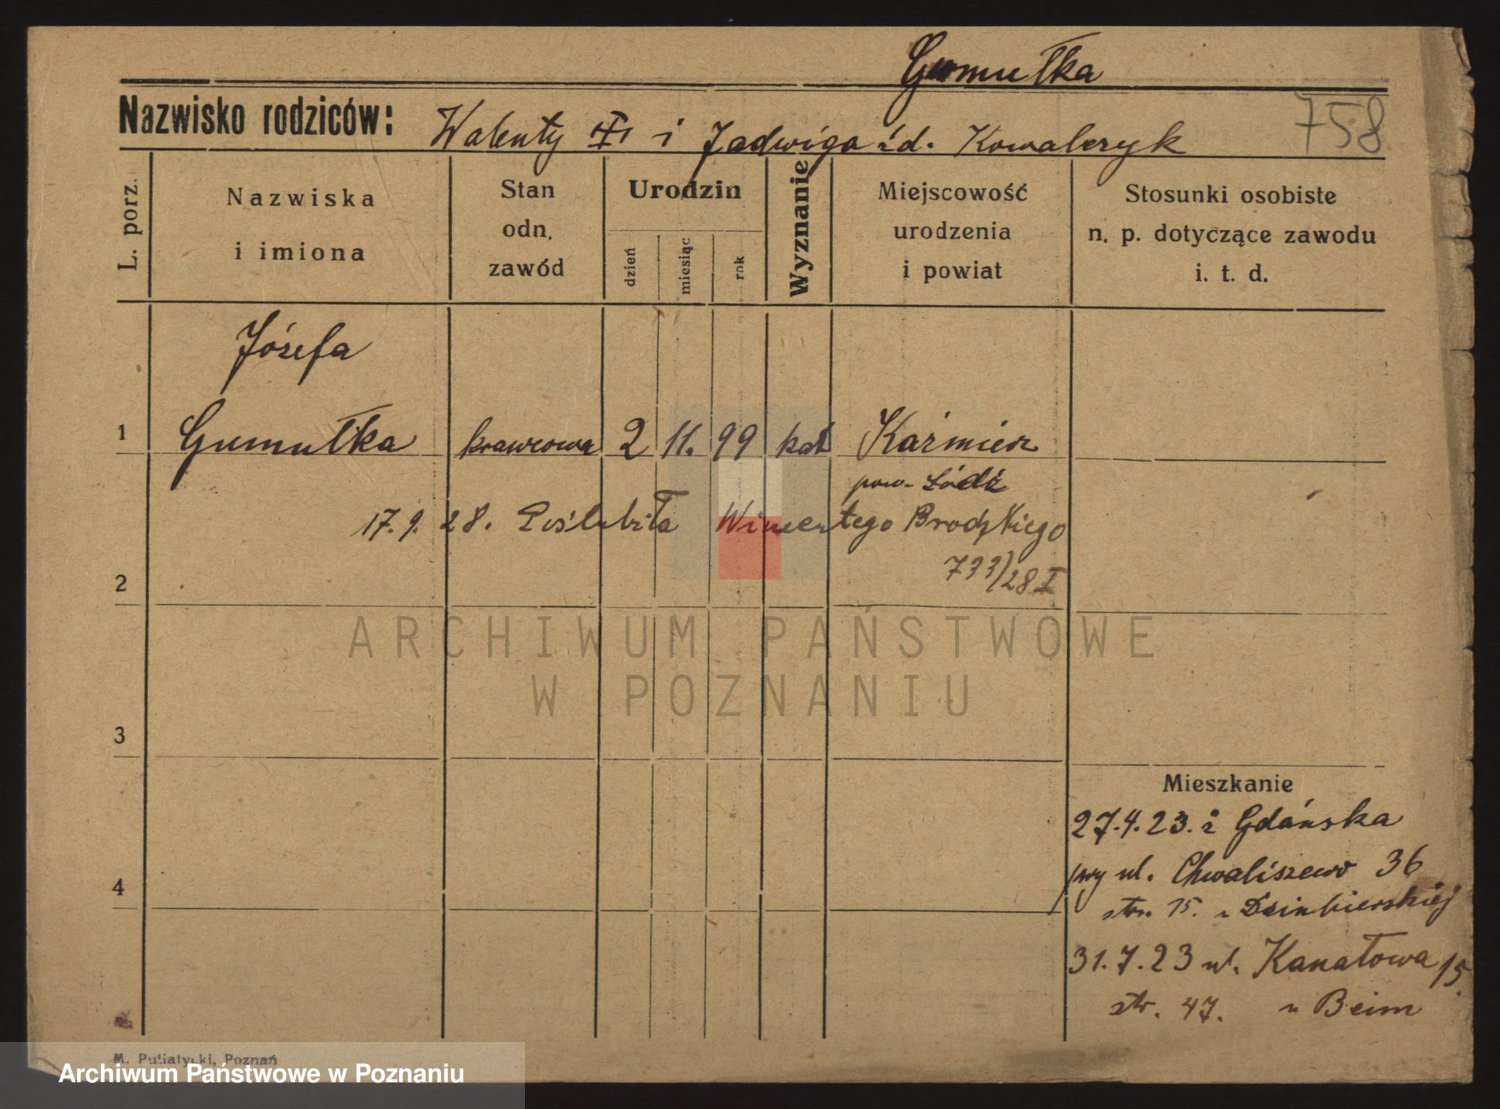 Gumułka
Nazwisko rodziców: Walenty i Jadwiga źd. Kowalczyk
758
L. porz.
Nazwiska
i imiona
Stan
odn.
zawód
Urodzin
dzień
miesiąc
rok
Wyznanie
Miejscowość
urodzenia
i powiat
Stosunki osobiste
n. p. dotyczące zawodu
i. t. d.
Józefa
1 Gumułka krawcowa 2 11. 99 kat Kaźmierz
pow. Łódź
17.9.28. Poślubiła Wincentego Brodzkiego
733/28 I
2
ARCHIWUM PAŃSTWOWE
W POZNANIU
3
Mieszkanie
27.4.23. z Gdańska
przy ul. Chwaliszewo 36
4
str. 15. u Dzinbierskiej
31.7.23 ul. Kanałowa 15
str. 47. u Beim
M. Putiatycki, Poznań
Archiwum Państwowe w Poznaniu